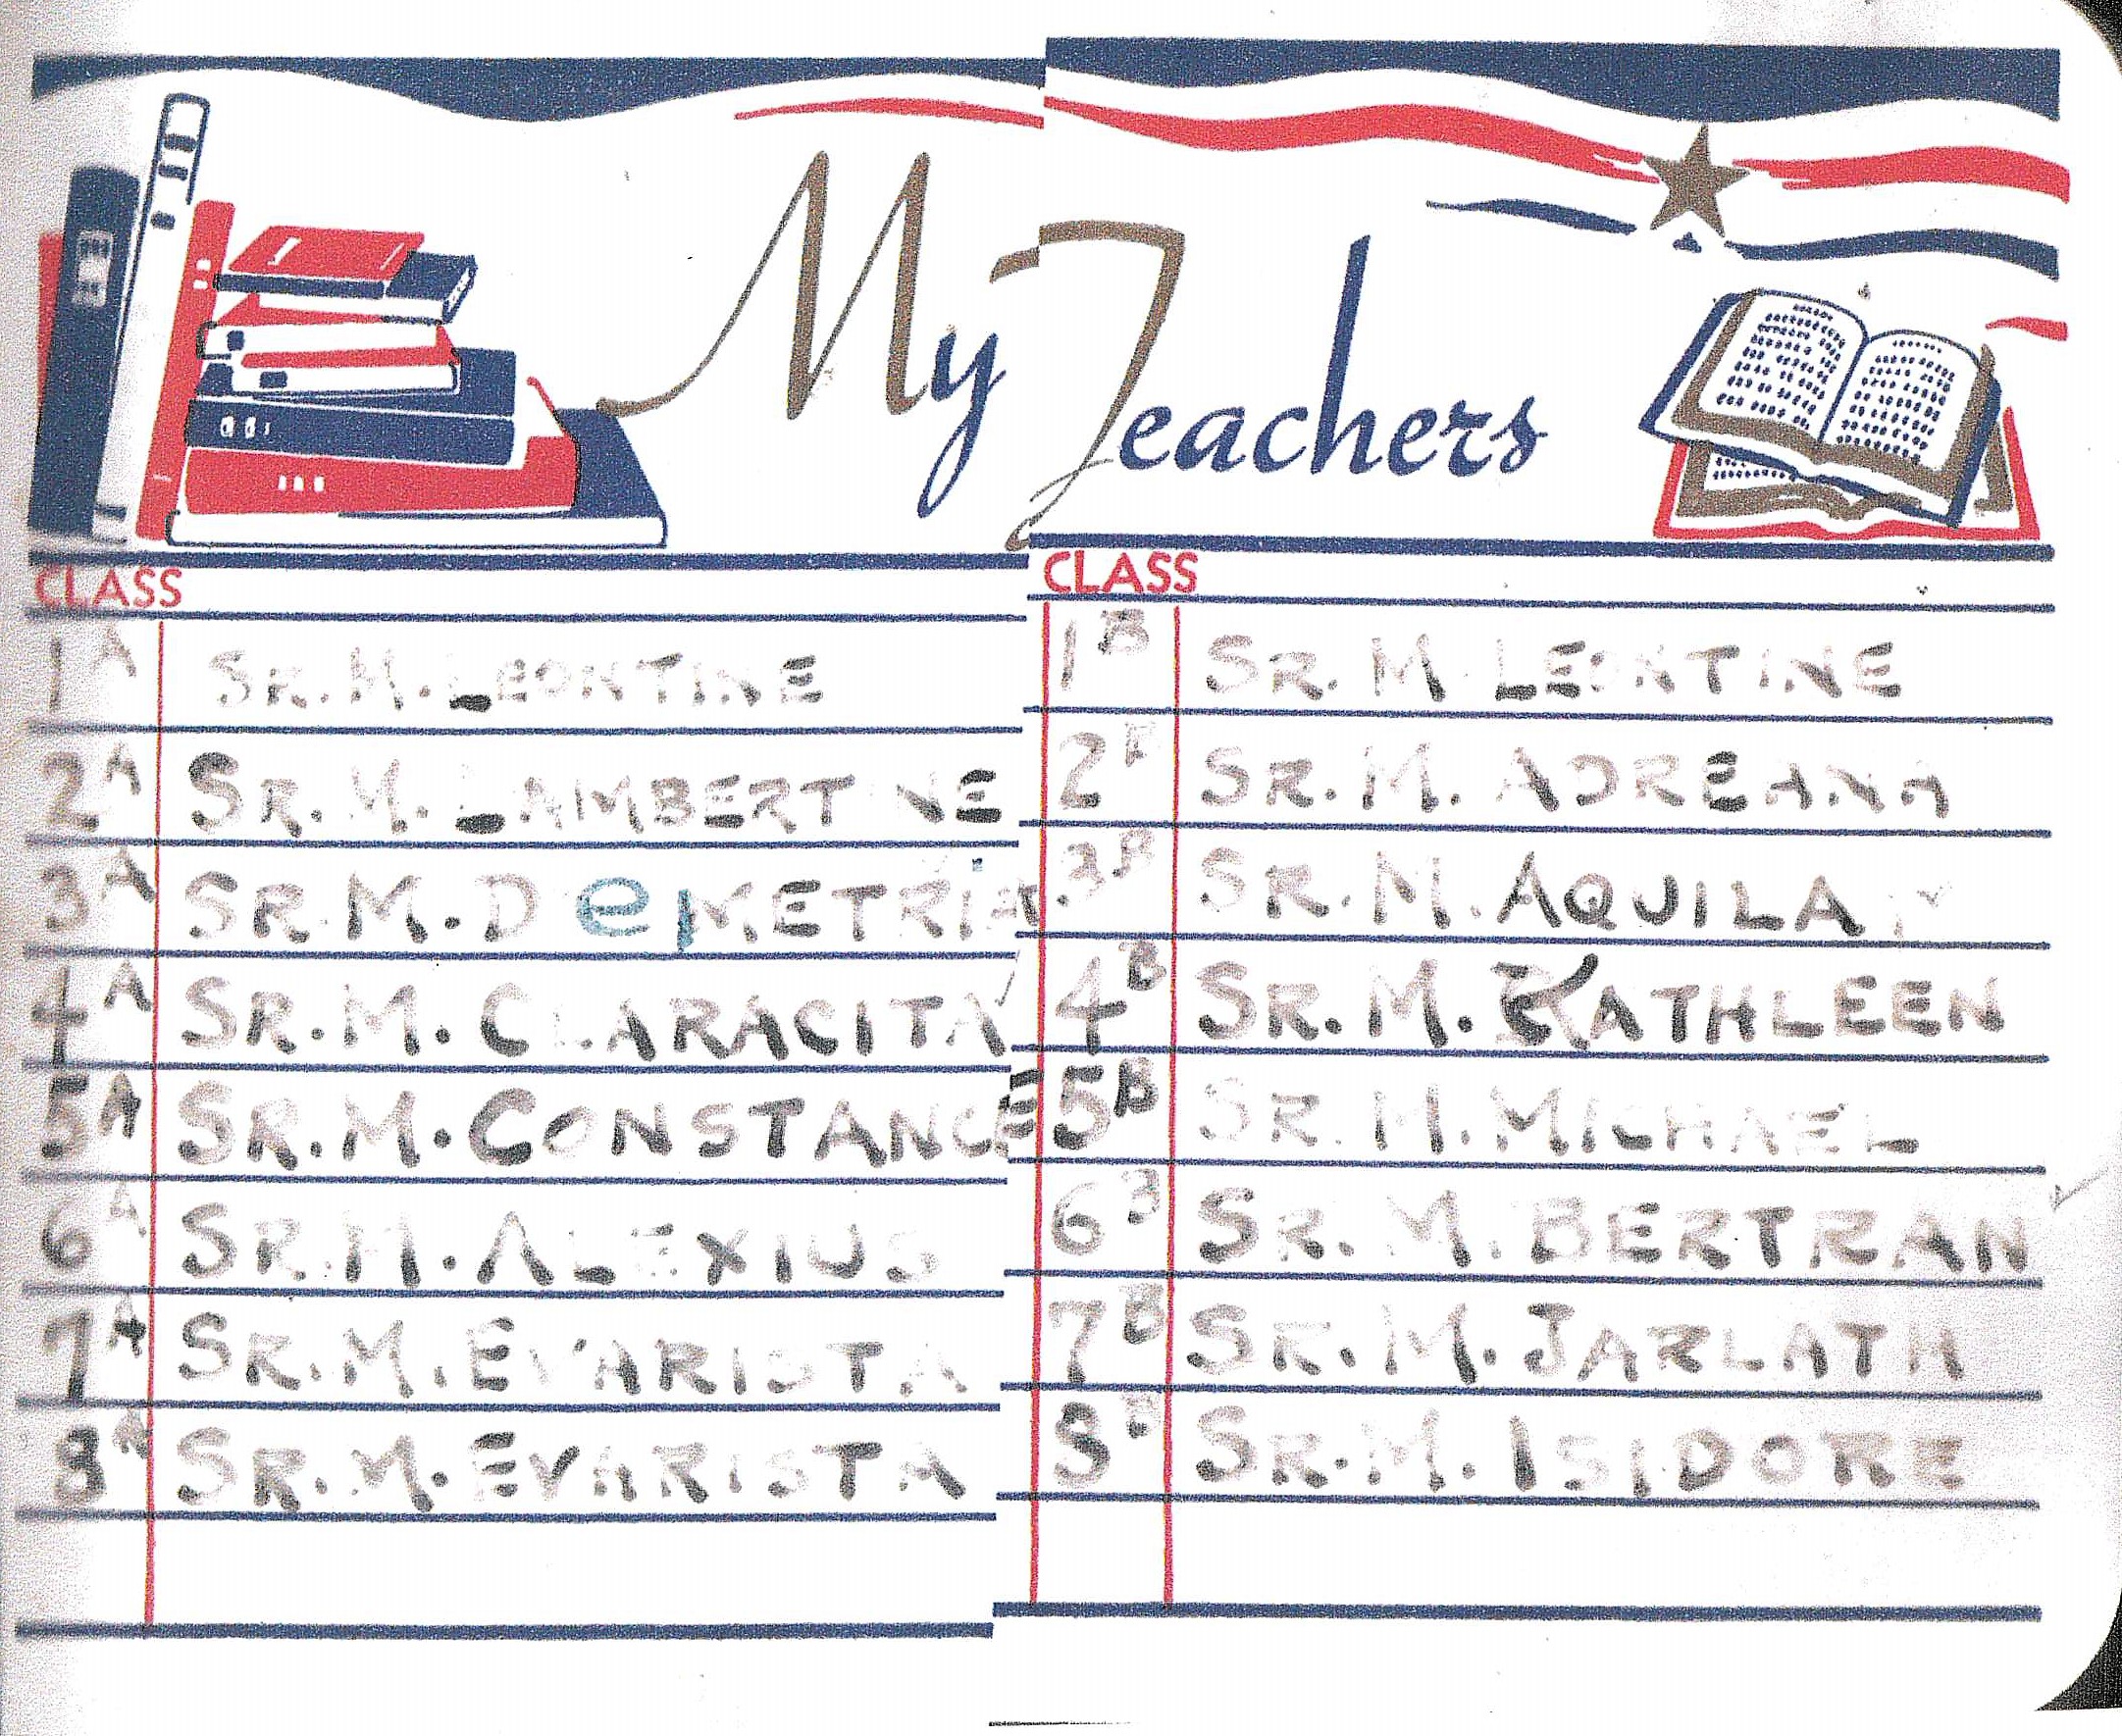 My Teachers
CLASS
1A SR. M. LEONTINE
2A SR. M. LAMBERTINE
3A SR. M. DeMETRiA
4A SR. M. CLARACITA
5A SR. M. CONSTANCE
6A SR. M. ALEXIUS
7A SR. M. EVARISTA
8A SR. M. EVARISTA
CLASS
1B SR. M. LEONTINE
2B SR. M. ADREANA
3B SR. M. AQUILA
4B SR. M. KATHLEEN
5B SR. M. MICHAEL
6B SR. M. BERTRAN
7B SR. M. JARLATH
8B SR. M. ISIDORE